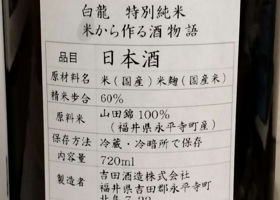 白龍 特別純米
米から作る酒物語
品目 日本酒
原材料名 米(国産)米麹(国産米)
精米歩合 60%
原料米 山田錦100%
(福井県永平寺町産)
保存方法 冷蔵・冷暗所で保存
内容量 720ml
製造者 吉田酒造株式会社
福井県吉田郡永平寺町